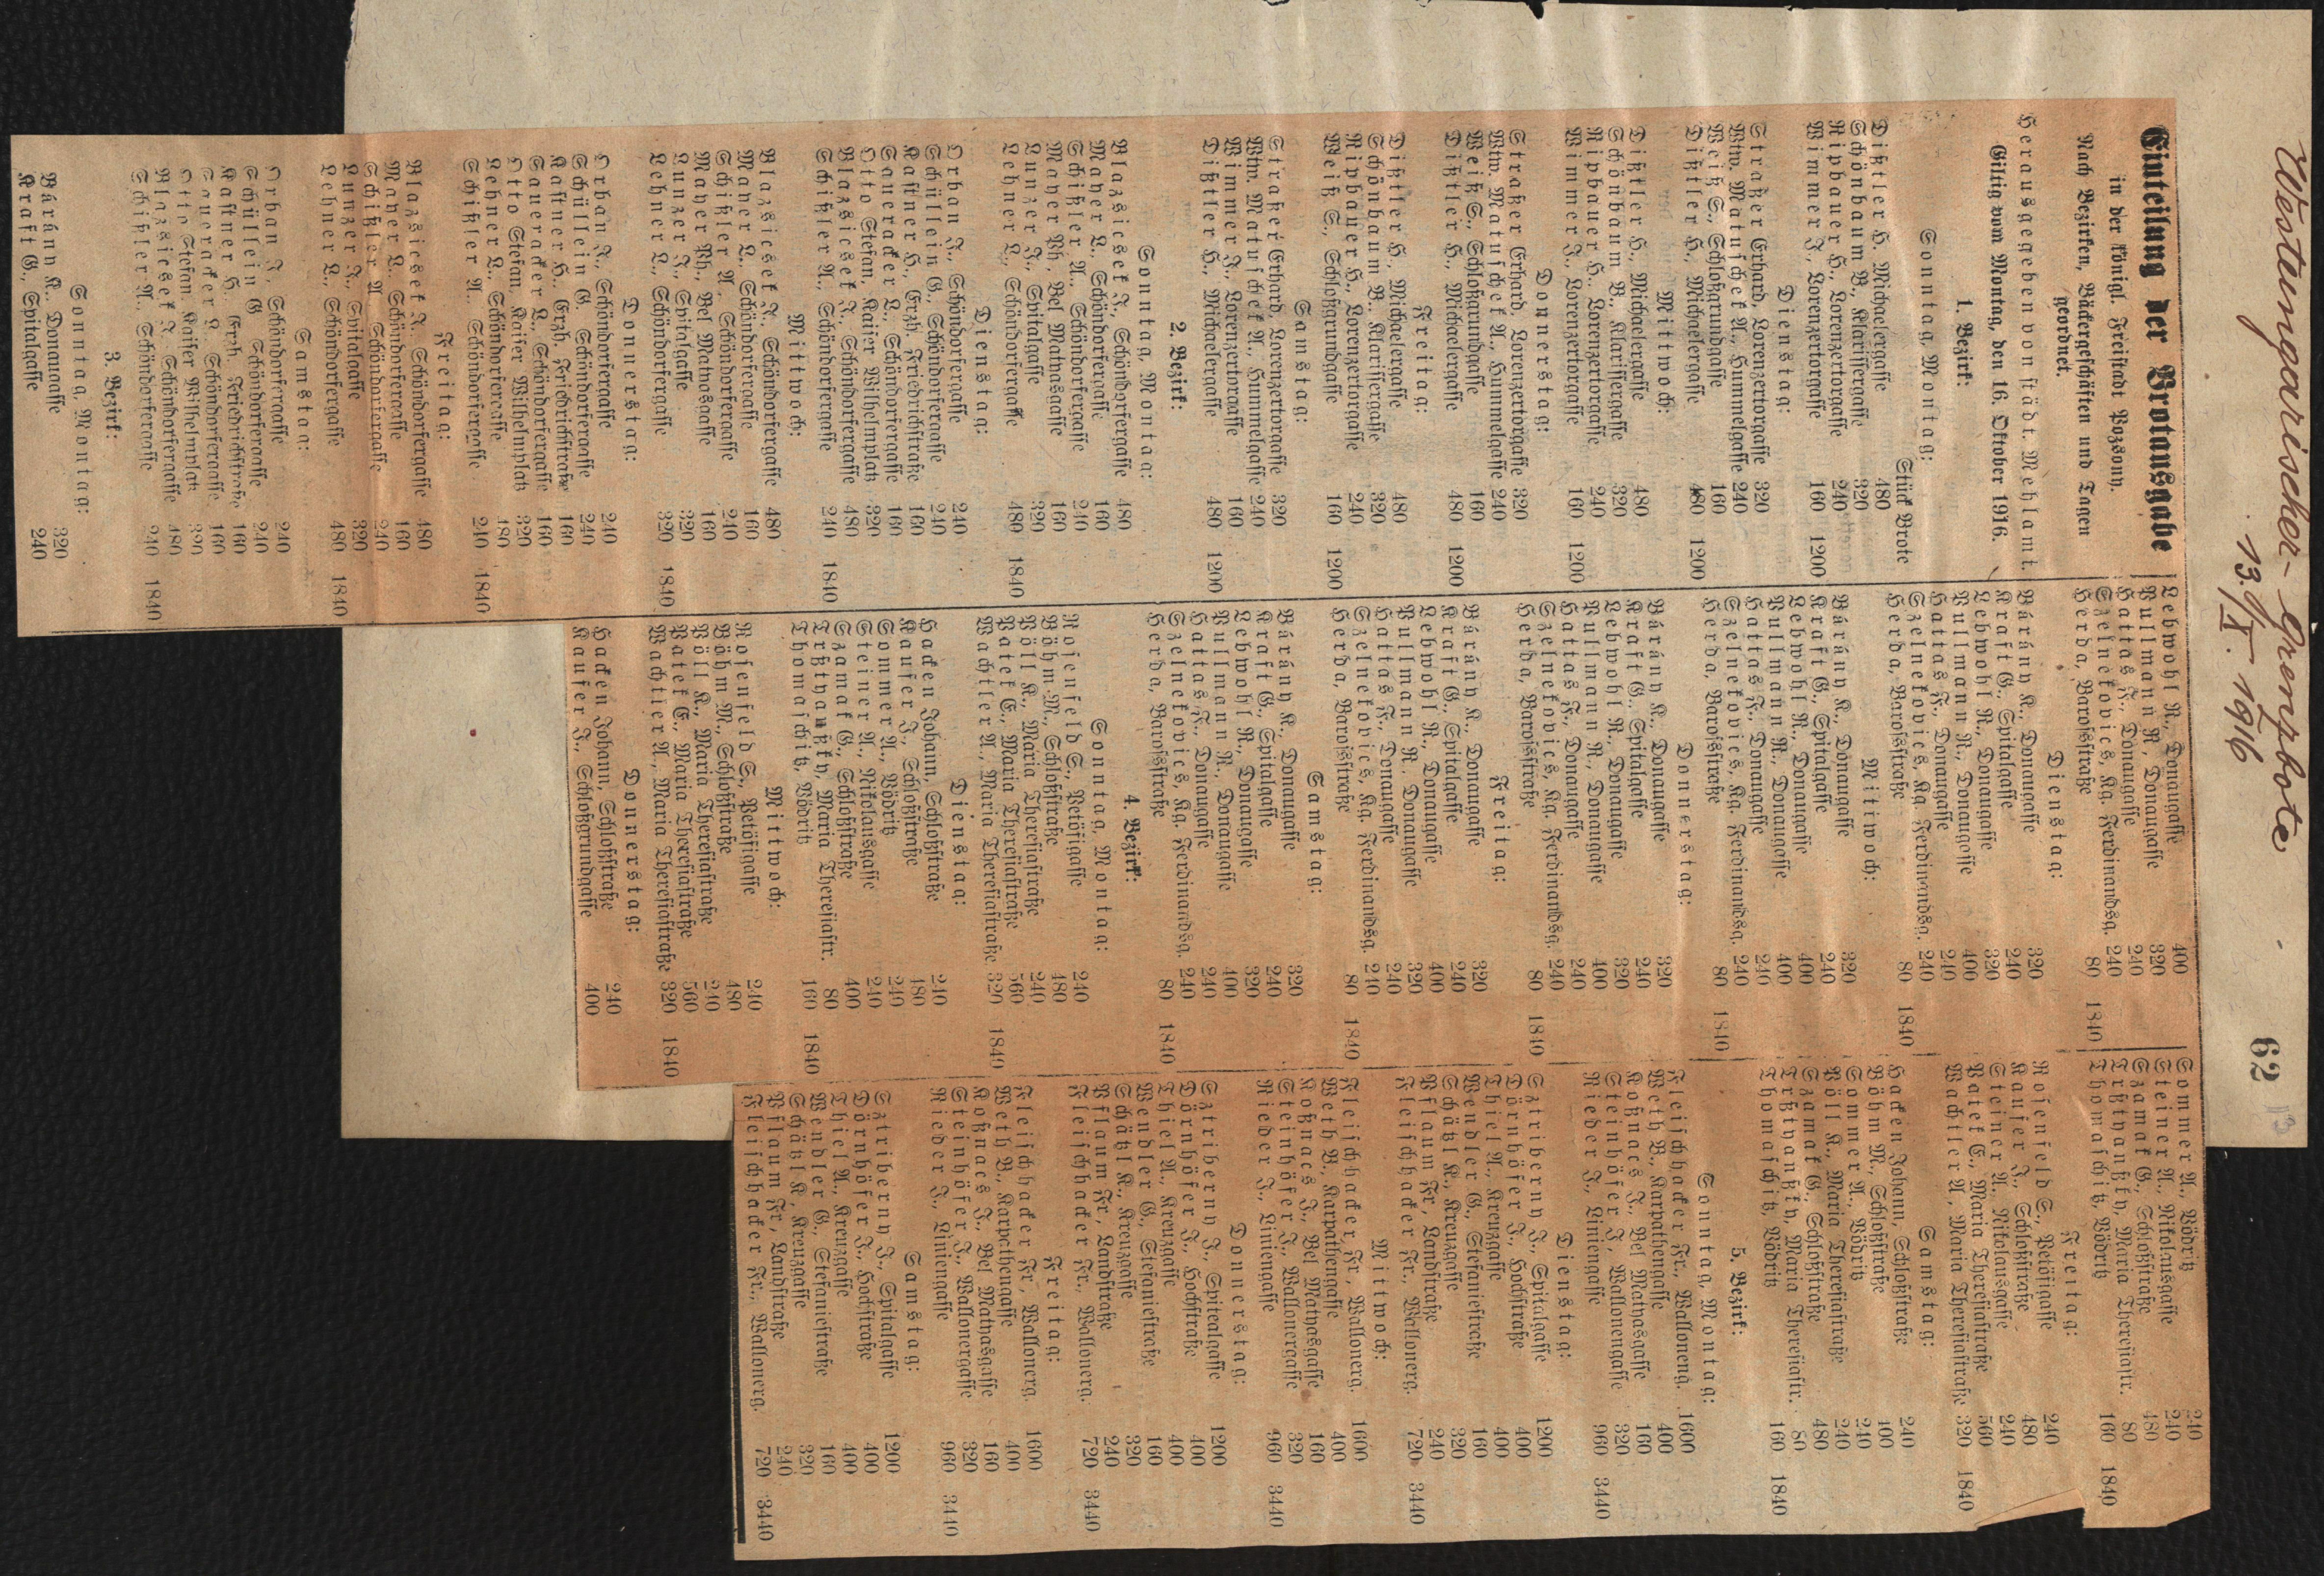 Westungarischer-Grenzbote
13./X. 1916
62
Einteilung der Brotausgabe
in der königl. Freistadt Pozsony.
Nach Bezirken, Bäckergeschäften und Tagen
geordnet.
Herausgegeben von städt. Mehlamt.
Giltig vom Montag, den 16. Oktober 1916.
1. Bezirk:
Sonntag, Montag:
Stück Brote
Dißtler H. Michaelergasse 480
Schönbaum B., Klarissergasse 320
Rippbauer H., Lorenzertorgasse 240
Wimmer J., Lorenzertorgasse 160 1200
Dienstag:
Straßer Erhard, Lorenzertorgasse 320
Wtw. Matuschek A., Hummelgasse 240
Weiß S., Schloßgrundgasse 160
Dißtler H., Michaelergasse 480 1200
Mittwoch:
Dißtler H., Michaelergasse 480
Schönbaum B., Klarissergasse 320
Rippbauer H., Lorenzertorgasse 240
Wimmer J., Lorenzertorgasse 160 1200
Donnerstag:
Straßer Erhard, Lorenzertorgasse 320
Wtw. Matuschek A., Hummelgasse 240
Weiß S., Schloßgrundgasse 160
Dißtler H., Michaelergasse 480 1200
Freitag:
Dißtler H., Michaelergasse 480
Schönbaum B., Klarissergasse 320
Rippbauer H., Lorenzertorgasse 240
Weiß S., Schloßgrundgasse 160 1200
Samstag:
Straßer Erhard, Lorenzertorgasse 320
Wtw. Matuschek A., Hummelgasse 240
Wimmer J., Lorenzertorgasse 160
Dißtler H., Michaelergasse 480 1200
2. Bezirk:
Sonntag, Montag:
Blazsicsek J., Schöndorfergasse 480
Mayer L., Schöndorfergasse 160
Schißler A., Schöndorfergasse 240
Mayer Ph., Bel Matyasgasse 160
Lunzer J., Spitalgasse 320
Lehner L., Schöndorfergasse 480 1840
Dienstag:
Orban J., Schöndorfergasse 240
Schüllein G., Schöndorfergasse 240
Kastner H., Erzh. Friedrichstraße 160
Saueracker L., Schöndorfergasse 160
Otto Stefan, Kaiser Wilhelmplatz 320
Blazsicsek J., Schöndorfergasse 480
Schißler A., Schöndorfergasse 240 1840
Mittwoch:
Blazsicsek J., Schöndorfergasse 480
Mayer L., Schöndorfergasse 160
Schißler A., Schöndorfergasse 240
Mayer Ph., Bel Matyasgasse 160
Lunzer J., Spitalgasse 320
Lehner L., Schöndorfergasse 320 1840
Donnerstag:
Orban J., Schöndorfergasse 240
Schüllein G. Schöndorfergasse 240
Kastner H., Erzh. Friedrichstraße 160
Saueracker L., Schöndorfergasse 160
Otto Stefan, Kaiser Wilhelmplatz 320
Lehner L., Schöndorfergasse 480
Schißler A., Schöndorfergasse 240 1840
Freitag:
Blazsicsek J. Schöndorfergasse 480
Mayer L. Schöndorfergasse 160
Schißler A. Schöndorfergasse 240
Lunzer J., Spitalgasse 320
Lehner L., Schöndorfergasse 480 1840
Samstag:
Orban J., Schöndorfergasse 240
Schüllein G. Schöndorfergasse 240
Kastner H. Erzh. Friedrichstraße 160
Saueracker L. Schöndorfergasse 160
Otto Stefan Kaiser Wilhelmplatz 320
Blazsicsek J. Schöndorfergasse 480
Schißler A., Schöndorfergasse 240 1840
3. Bezirk:
Sonntag, Montag:
Bárány K., Donaugasse 320
Kraft G., Spitalgasse 240
Lebwohl R., Donaugasse 400
Pullmann R. Donaugasse 320
Hattas F., Donaugasse 240
Czelnekovics, Kg. Ferdinandsg. 240
Herda, Barossstraße 80 1840
Dienstag:
Bárány K., Donaugasse 320
Kraft G., Spitalgasse 240
Lebwohl R., Donaugasse 320
Pullmann R., Donaugasse 400
Hattas F., Donaugasse 240
Czelnekovics, Kg. Ferdinandsg. 240
Herda, Barossstraße 80 1840
Mittwoch:
Bárány K., Donaugasse 320
Kraft G., Spitalgasse 240
Lebwohl R., Donaugasse 400
Pullmann R., Donaugasse 400
Hattas F., Donaugasse 240
Czelnekovics, Kg. Ferdinandsg. 240
Herda, Barossstraße 80 1840
Donnerstag:
Bárány K., Donaugasse 320
Kraft G., Spitalgasse 240
Lebwohl R., Donaugasse 320
Pullmann R., Donaugasse 400
Hattas F., Donaugasse 240
Czelnekovics, Kg. Ferdinandsg. 240
Herda, Barossstraße 80 1840
Freitag:
Bárány K., Donaugasse 320
Kraft G., Spitalgasse 240
Lebwohl R., Donaugasse 400
Pullmann R., Donaugasse 320
Hattas F., Donaugasse 240
Czelnekovics, Kg. Ferdinandsg. 240
Herda, Barossstraße 80 1840
Samstag:
Bárány K., Donaugasse 320
Kraft G., Spitalgasse 240
Lebwohl R., Donaugasse 320
Pullmann R., Donaugasse 400
Hattas F., Donaugasse 240
Czelnekovics, Kg. Ferdinandsg. 240
Herda, Barossstraße 80 1840
4. Bezirk:
Sonntag, Montag:
Rosenfeld S., Petöfigasse 240
Böhm M., Schloßstraße 480
Pöll K., Maria Theresiastraße 240
Patek E., Maria Theresiastraße 560
Wachtler A., Maria Theresiastraße 320 1840
Dienstag:
Hacken Johann, Schloßstraße 240
Kaufer J., Schloßstraße 480
Sommer A., Vödritz 240
Steiner A., Nikolausgasse 240
Czamak G., Schloßstraße 400
Trßtyanßky, Maria Theresiastr. 80
Thomaschitz, Vödritz 160 1840
Mittwoch:
Rosenfeld S., Petöfigasse 240
Böhm M., Schloßstraße 480
Pöll K., Maria Theresiastraße 240
Patek E., Maria Theresiastraße 560
Wachtler A., Maria Theresiastraße 320 1840
Donnerstag:
Hacken Johann, Schloßstraße 240
Kaufer J., Schloßgrundgasse 400
Sommer A., Vödritz 240
Steiner A., Nikolausgasse 240
Czamak G., Schloßstraße 480
Trßtyanßky, Maria Theresiastr. 80
Thomaschitz, Vödritz 160 1840
Freitag:
Rosenfeld S., Petöfigasse 240
Kaufer J., Schloßstraße 480
Steiner A., Nikolausgasse 240
Patek E., Maria Theresiastraße 560
Wachtler A., Maria Theresiastraße 320 1840
Samstag:
Hacken Johann, Schloßstraße 240
Böhm M., Schloßstraße 400
Sommer A., Vödritz 240
Pöll K., Maria Theresiastraße 240
Czamak G., Schloßstraße 480
Trßtyanßky, Maria Theresiastr. 80
Thomaschitz, Vödritz 160 1840
5. Bezirk:
Sonntag, Montag:
Fleischhacker Fr., Wallonerg. 1600
Weth B., Karpathengasse 400
Koßnacs J., Bel Matyasgasse 160
Steinhöfer J., Wallonergasse 320
Rieder J., Liniengasse 960 3440
Dienstag:
Sztriberny J., Spitalgasse 1200
Dörnhöfer J., Hochstraße 400
Thiel A., Kreuzgasse 400
Wendler G., Stefaniestraße 160
Schätzl K., Kreuzgasse 320
Pflaum Fr., Landstraße 240
Fleischhacker Fr., Wallonerg. 720 3440
Mittwoch:
Fleischhacker, Fr., Wallonerg. 1600
Weth B., Karpathengasse 400
Koßnacs J., Bel Matyasgasse 160
Steinhöfer J., Wallonergasse 320
Rieder J., Liniengasse 960 3440
Donnerstag:
Sztriberny J., Spitealgasse 1200
Dörnhöfer J., Hochstraße 400
Thiel A., Kreuzgasse 400
Wendler G., Stefaniestraße 160
Schätzl K., Kreuzgasse 320
Pflaum Fr., Landstraße 240
Fleischhacker Fr., Wallonerg. 720 3440
Freitag:
Fleischhacker Fr., Wallonerg. 1600
Weth B., Karpathengasse 400
Koßnacs J., Bel Matyasgasse 160
Steinhöfer J., Wallonergasse 320
Rieder J., Liniengasse 960 3440
Samstag:
Sztriberny J., Spitalgasse 1200
Dörnhöfer J., Hochstraße 400
Thiel A., Kreuzgasse 400
Wendler G., Stefaniestraße 160
Schätzl K., Kreuzgasse 320
Pflaum Fr., Landstraße 240
Fleischhacker Fr., Wallonerg. 720 3440